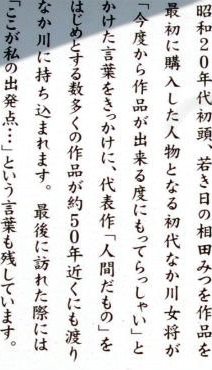 昭和20年代初頭、若き日の相田みつを作品を
最初に購入した人物となる初代なか川女将が
「今度から作品が出来る度にもってらっしゃい」と
かけた言葉をきっかけに、代表作「人間だもの」を
はじめとする数多くの作品が約50年近くにも渡り
なか川に持ち込まれます。 最後に訪れた際には
「ここが私の出発点…」という言葉も残しています。